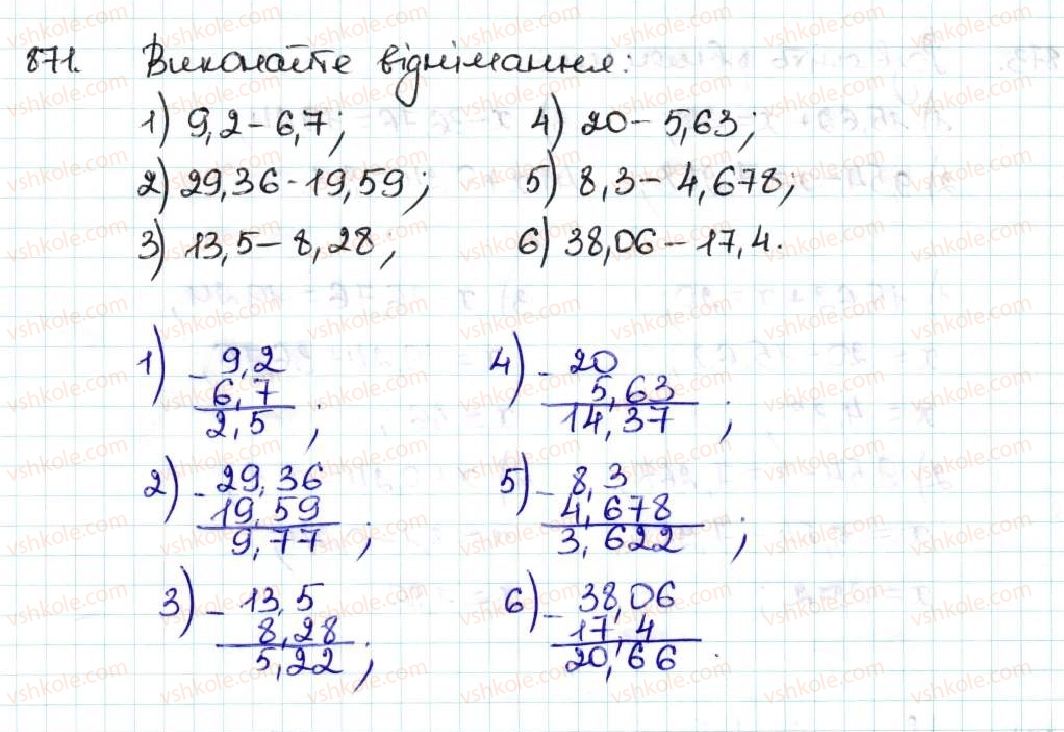 871. Виконайте віднімання:
1) 9,2 - 6,7; 4) 20 - 5,63;
2) 29,36 - 19,59; 5) 8,3 - 4,678;
3) 13,5 - 8,28; 6) 38,06 - 17,4.
1) - 9,2 4) - 20
6,7 5,63
2,5; 14,37;
2) - 29,36 5) - 8,3
19,59 4,678
9,77; 3,622;
3) - 13,5 6) - 38,06
8,28 17,4
5,22; 20,66.